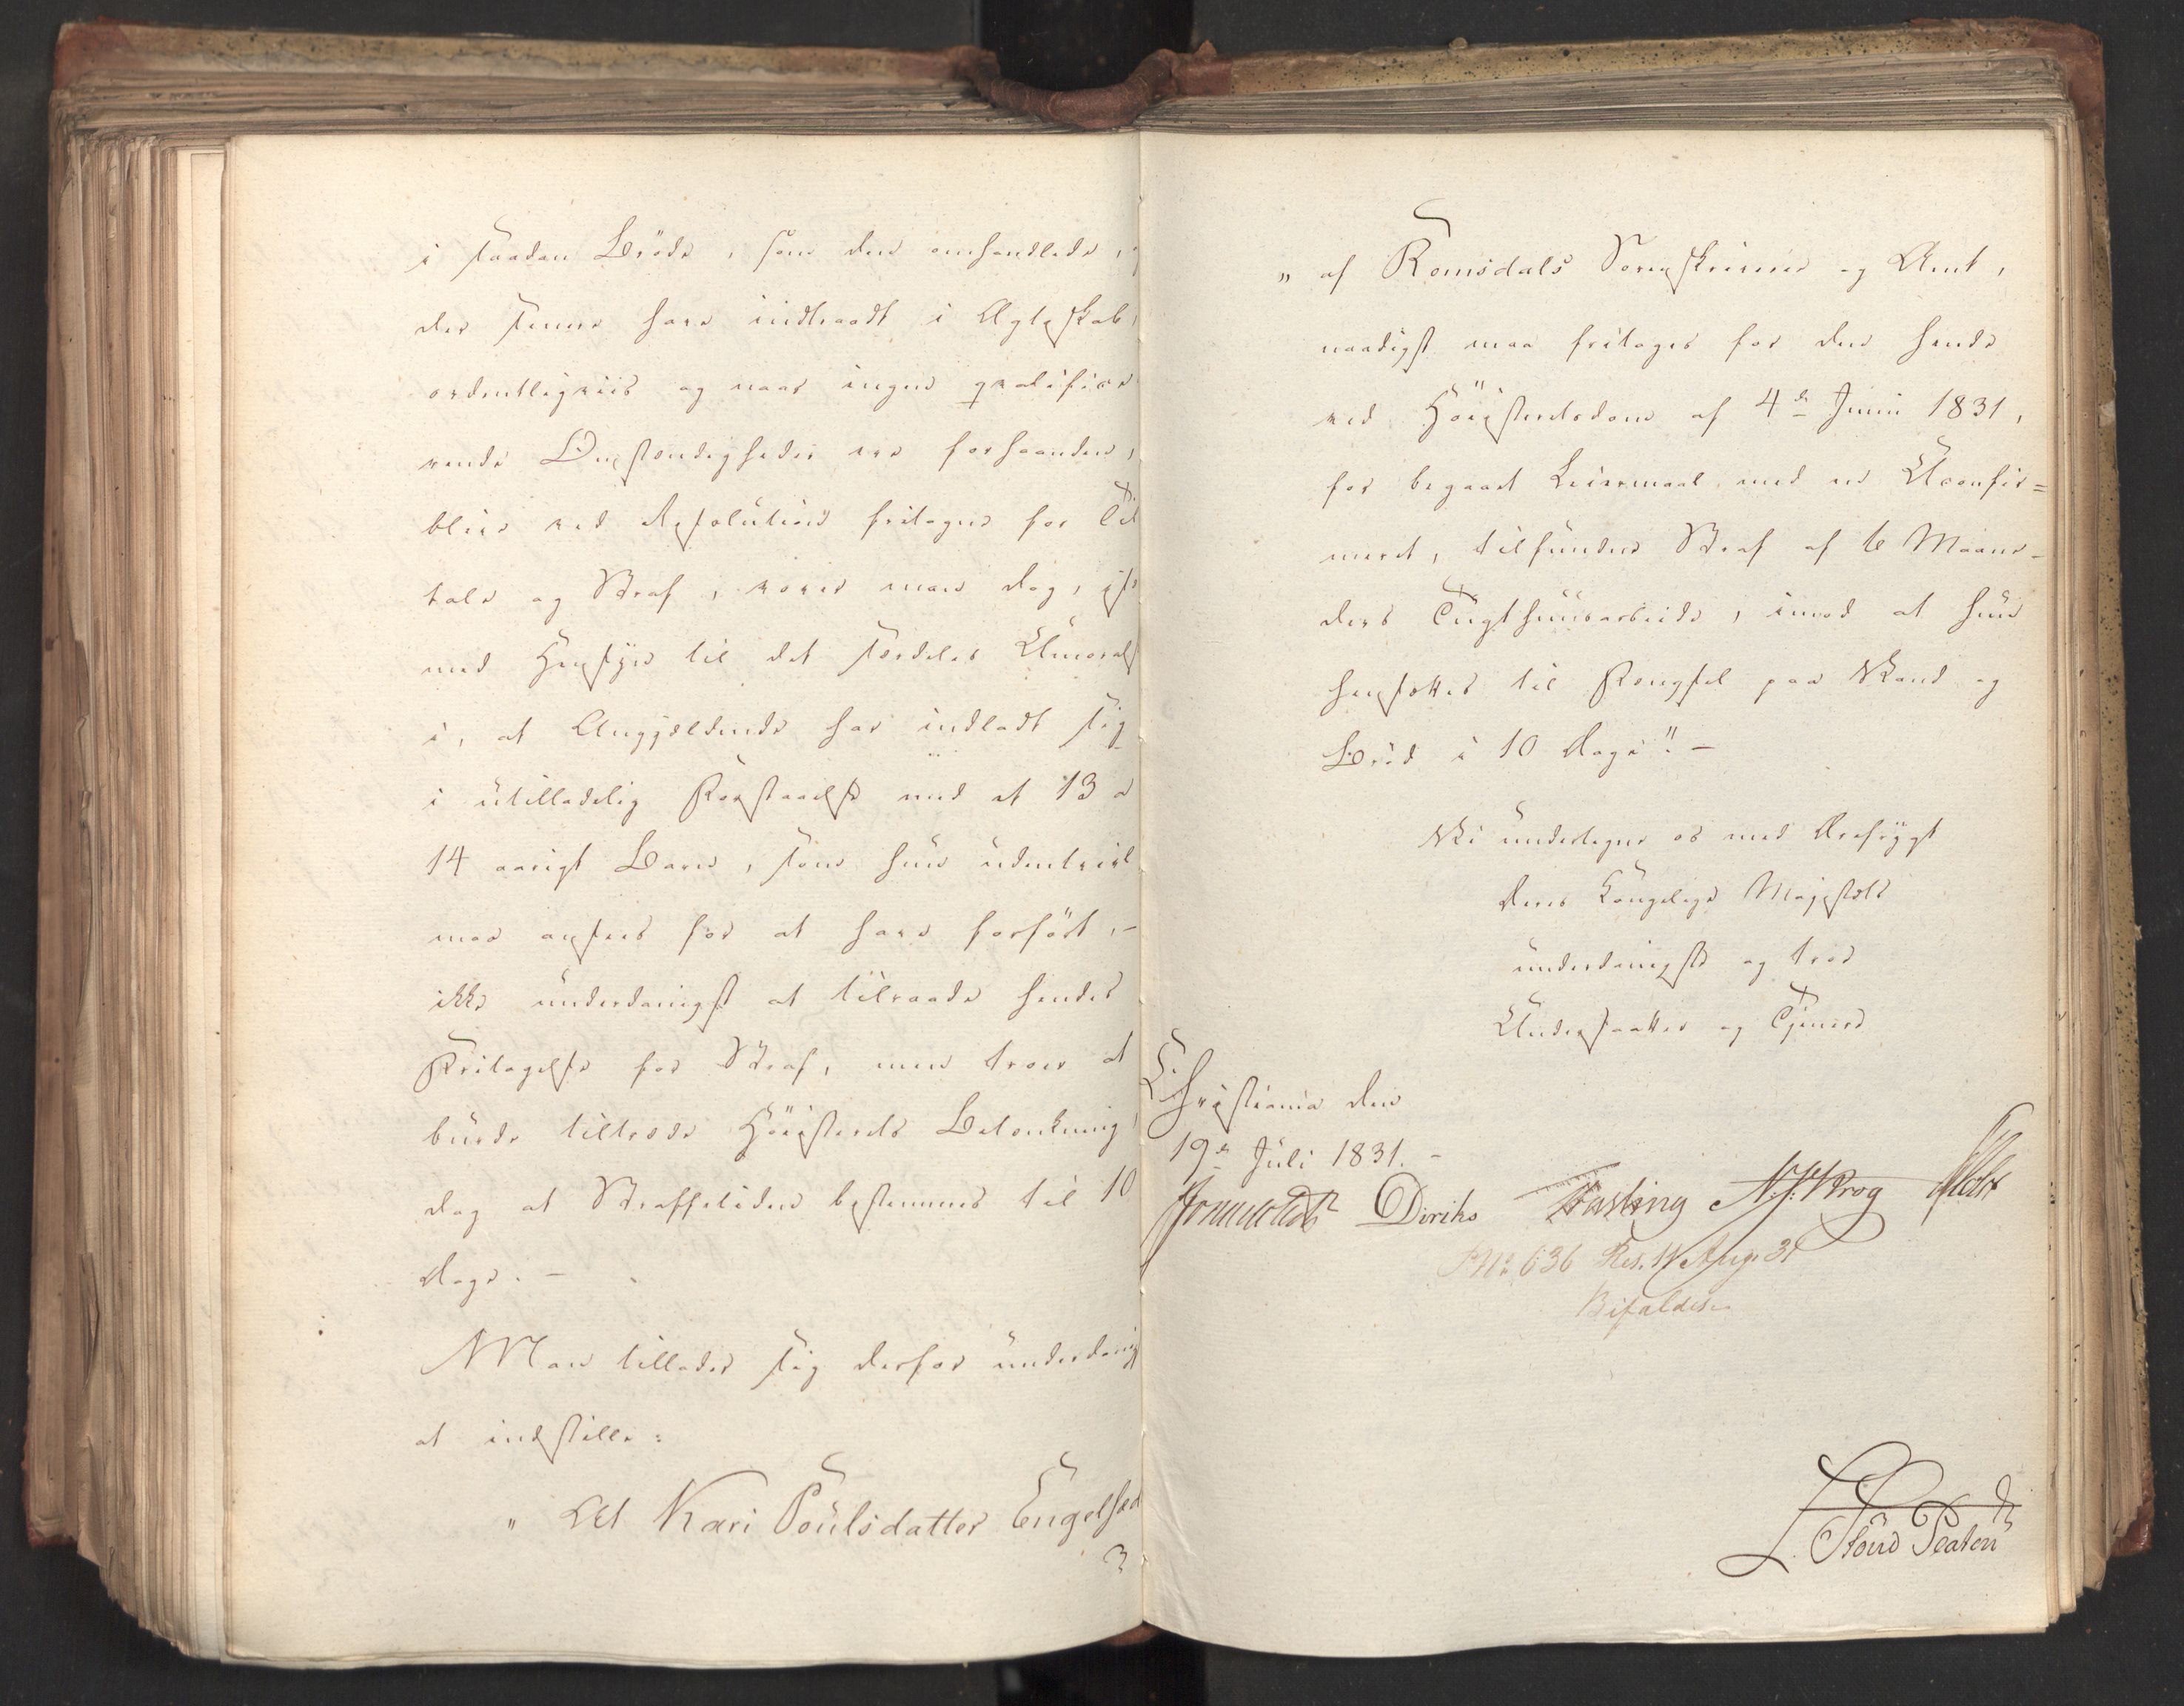 i saadan Bröde, som den omhandlede,
der senere have indtraadt i Ægteskab,
ordentligviis og naar ingen qvalifice
rende Omstændigheder ere forhaanden,
blive ved Resolution fritagne for Til
tale og Straf, vover man dog, især
med Hensyn til det særdeles Umoralsk
i, at Angjældende har indladt sig
i utilladelig Forstaaelse med et 13 a
14 aarigt Barn, som hun udentvivl
maa ansees for at have forført, -
ikke underdanigst at tilraade hendes
Fritagelse for Straf, men troer at
burde tiltræde Höiesterets Betænkning,
dog at Straffetiden bestemmes til 10
Dage. -
Man tillader sig derfor underdanigst
at indstille:
„ At Kari Poulsdatter Engelsæt
„ af Romsdals Sorenskriverie og Amt,
naadigst maa fritages for den hende
ved Höiesteretsdom af 4de Junii 1831,
for begaaet Leiermaal med en Uconfir=
meret, tilfundne Straf af 6 Maane-
ders Tugthuusarbeide, imod at hun
hensættes til Fængsel paa Vand og
Bröd i 10 Dage". -
Vi undertegne os med Ærefrygt
Deres Kongelige Majestæts
underdanigste og troe
Undersaatter og Tjenere
Christiania den
19de Juli 1831. -
Sommerfeldt Diriks Fasting N. J. Krog Holst
No 636 Res. 11 Aug. 31
Bifaldes.
Stoud Platou